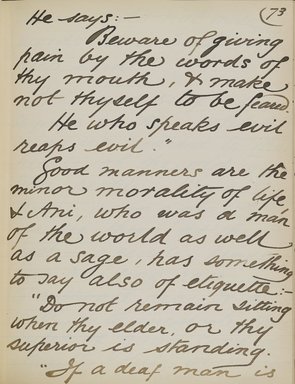 73
He says:-
Beware of giving
pain by the words of
thy mouth, & make
not thyself to be feared.
He who speaks evil
reaps evil."
Good manners are the
minor morality of life,
& Ani, who was a man
of the world as well
as a sage, has something
to say also of etiquette:-
"Do not remain sitting
when thy elder, or thy
superior is standing.
"If a deaf man is